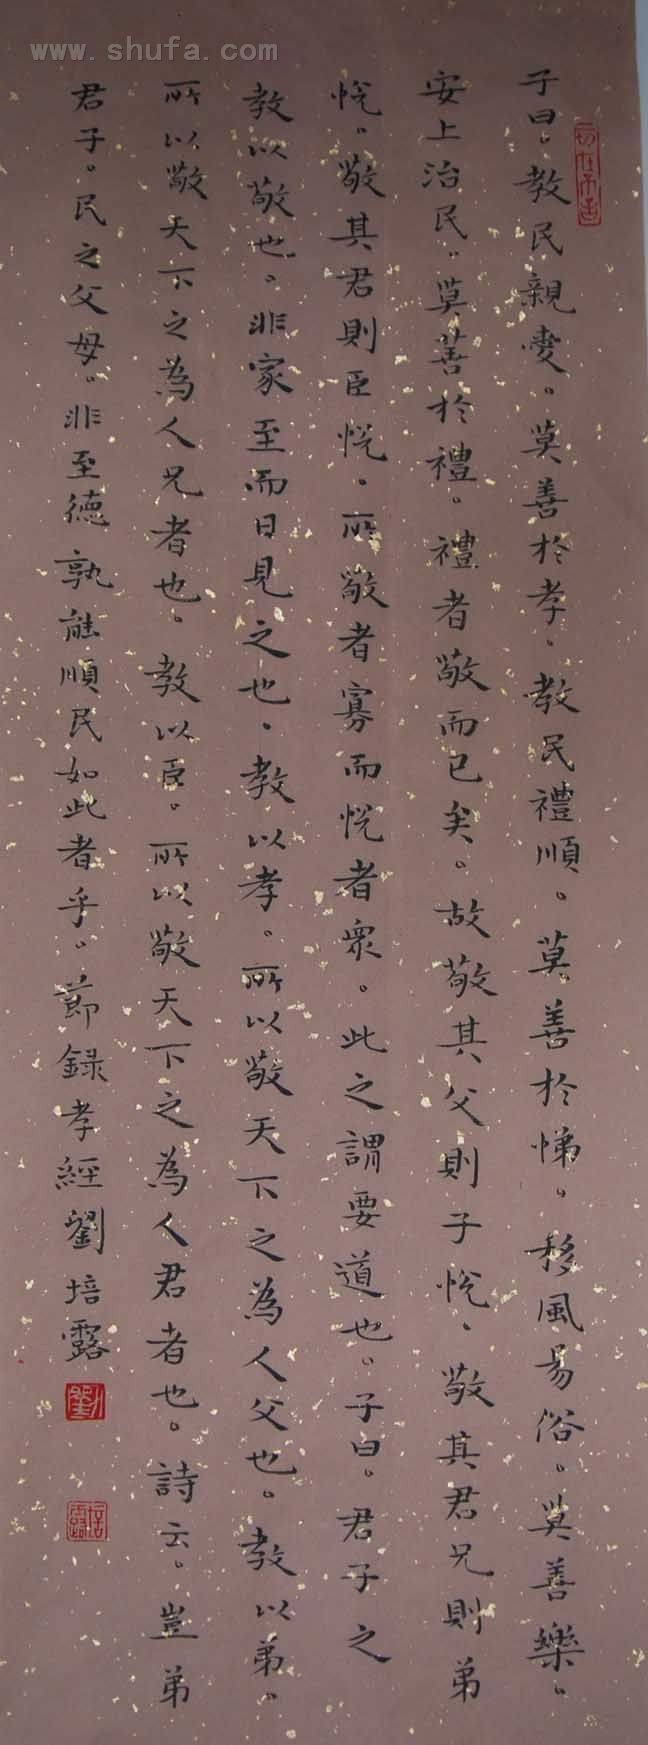 www.shufa.com
子曰。教民親愛。莫善於孝、教民禮順。莫善於悌。移風易俗。莫善樂。
安上治民。莫善於禮。禮者敬而已矣。故敬其父則子悅、敬其君兄則弟
悅。敬其君則臣悅。所敬者寡而悅者衆。此之謂要道也。子曰。君子之
教以敬也。非家至而日見之也、教以孝。所以敬天下之為人父也。教以弟。
所以敬天下之為人兄者也。教以臣。所以敬天下之為人君者也。詩云。豈弟
君子。民之父母。非至德孰能順民如此者乎。節録孝經劉培露
劉
培露